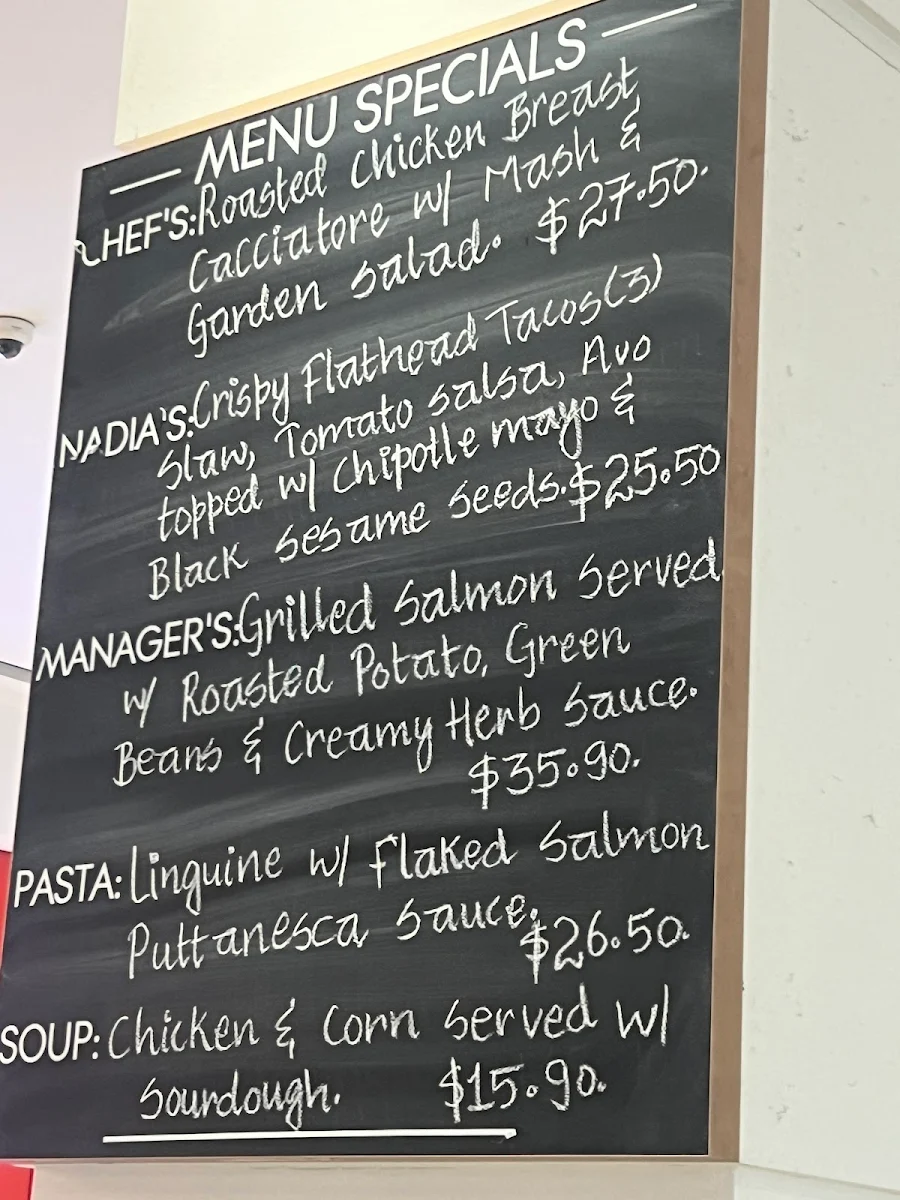 MENU SPECIALS
CHEF'S: Roasted Chicken Breast
Cacciatore w/ Mash &
Garden Salad. $27.50.
NADIA'S: Crispy Flathead Tacos (3)
Slaw, Tomato Salsa, Avo
topped w/ Chipotle mayo &
Black Sesame Seeds. $25.50
MANAGER'S: Grilled Salmon Served
w/ Roasted Potato, Green
Beans & Creamy Herb Sauce.
$35.90.
PASTA: Linguine w/ Flaked Salmon
Puttanesca Sauce.
$26.50.
SOUP: Chicken & Corn Served w/
Sourdough. $15.90.